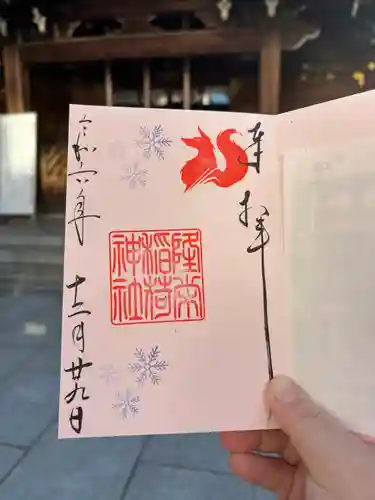 奉拝
隆栄
稲荷
神社
令和六年
十二月廿九日